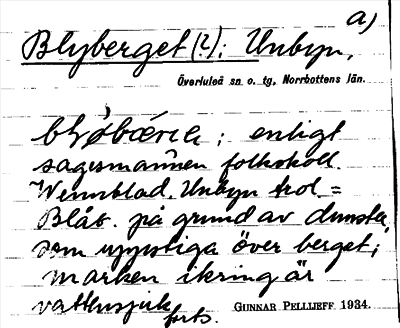 a)
Blyberget (?); Unbyn,
Överluleå sn o. tg, Norrbottens län.
; enligt
sagesmannen folkskoll.
Wennblad, Unbyn trol. =
Blåb. på grund av dunster,
som uppstiga över berget;
marken ikring är
vattensjuk
forts.
GUNNAR PELLIJEFF 1934.